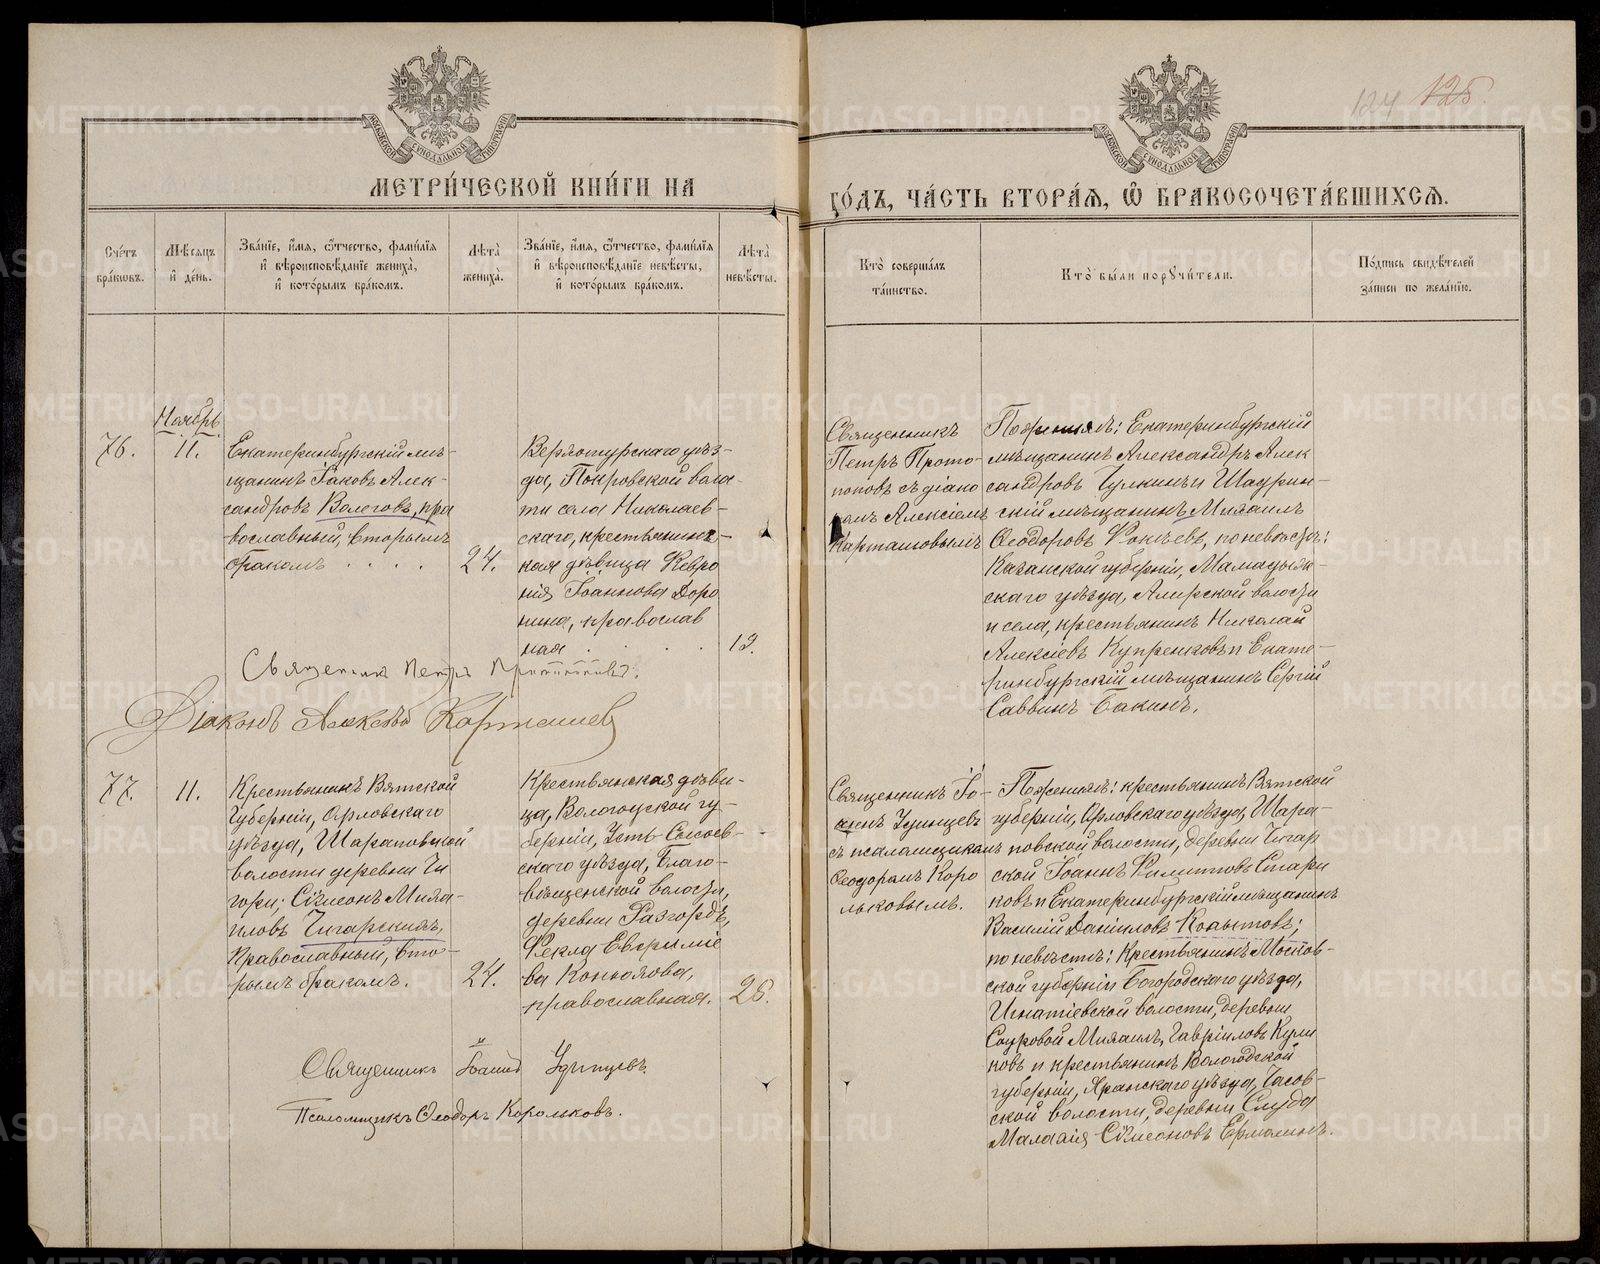 124 125.
МОСКОВСКОЙ СѴНОДАЛЬНОЙ ТИПОГРАФІИ
МОСКОВСКОЙ СѴНОДАЛЬНОЙ ТИПОГРАФІИ
МЕТРИ́ЧЕСКОЙ КНИ́ГИ НА
ГО́ДЪ, ЧА́СТЬ ВТОРА́Ѧ, Ѽ БРАКОСОЧЕТА́ВШИХСѦ.
Сче́тъ бра́ковъ.
Мѣ́сяцъ и҆ де́нь.
Зва́нїе, и҆́мѧ, ѻ҆́тчество, фами́лїѧ и҆ вѣроисповѣ́данїе жениха̀, и҆ кото́рымъ бра́комъ.
Лѣ́та жениха̀.
Зва́нїе, и҆́мѧ, ѻ҆́тчество, фами́лїѧ и҆ вѣроисповѣ́данїе невѣ́сты, и҆ кото́рымъ бра́комъ.
Лѣ́та невѣ́сты.
Кто̀ соверша́лъ та́инство.
Кто̀ бы́ли порꙋчи́тели.
По́дпись свидѣ́телей за́писи по жела́нїю.
Ноябрь
76.
11.
Екатеринбургскій мѣ-
щанинъ Іаковъ Алек-
сандровъ Волеговъ, пра
вославный, вторымъ
бракомъ . . . .
24.
Верхотурскаго уѣз-
да, Покровской воло
сти села Николаев-
скаго, крестьянс-
кая дѣвица Февро
нія Іоаннова Доро
нина, православ
ная . . . .
19.
Священникъ
Петръ Прото-
поповъ съ діако
номъ Алексіемъ
Карташовымъ
По женихѣ: Екатеринбургскій
мѣщанинъ Александръ Алек
сандровъ Чулкинъ и Шадрин-
скій мѣщанинъ Михаилъ
Ѳеодоровъ Фокѣевъ, по невѣстѣ:
Казанской губерніи, Мамадыш-
скаго уѣзда, волости
и села, крестьянинъ Николай
Алексіевъ Купреишовъ и Екате-
ринбургскій мѣщанинъ Сергій
Саввинъ Бакинъ.
Священникъ Петръ Протопоповъ.
Діаконъ Алексѣй Карташевъ
77.
11.
Крестьянинъ Вятской
губерніи, Орловскаго
уѣзда, Шараповской
волости деревни Чи
гори; Сѵмеонъ Миха-
иловъ Чигарскихъ,
православный, вто-
рымъ бракомъ.
24.
Крестьянская дѣви-
ца, Вологодской гу-
берніи, Усть-Сысоев-
скаго уѣзда, Благо-
вѣщенской волости,
деревни Разгордъ,
Ѳекла Евѳиміе
ва Конюхова,
православная.
26.
Священникъ Іо-
аннъ Удинцевъ
съ псаломщикомъ
Ѳеодоромъ Коро
льковымъ.
По женихѣ: крестьянинъ Вятской
губерніи, Орловскаго уѣзда, Шара-
повской волости, деревни Чигар
ской Іоаннъ Филипповъ Стари
ковъ и Екатеринбургскій мѣщанинъ
Василій Даниловъ Копытовъ;
по невѣстѣ: Крестьянинъ Москов-
ской губерніи Богородскаго уѣзда,
Игнатіевской волости, деревни
Михаилъ Гавріиловъ Кули
ковъ и крестьянинъ Вологодской
губерніи, Яранскаго уѣзда, Часов-
ской волости, деревни Слуда
Малахія Сѵмеоновъ Ермолинъ.
Священникъ Іоаннъ Удинцевъ
Псаломщикъ Ѳеодоръ Корольковъ.